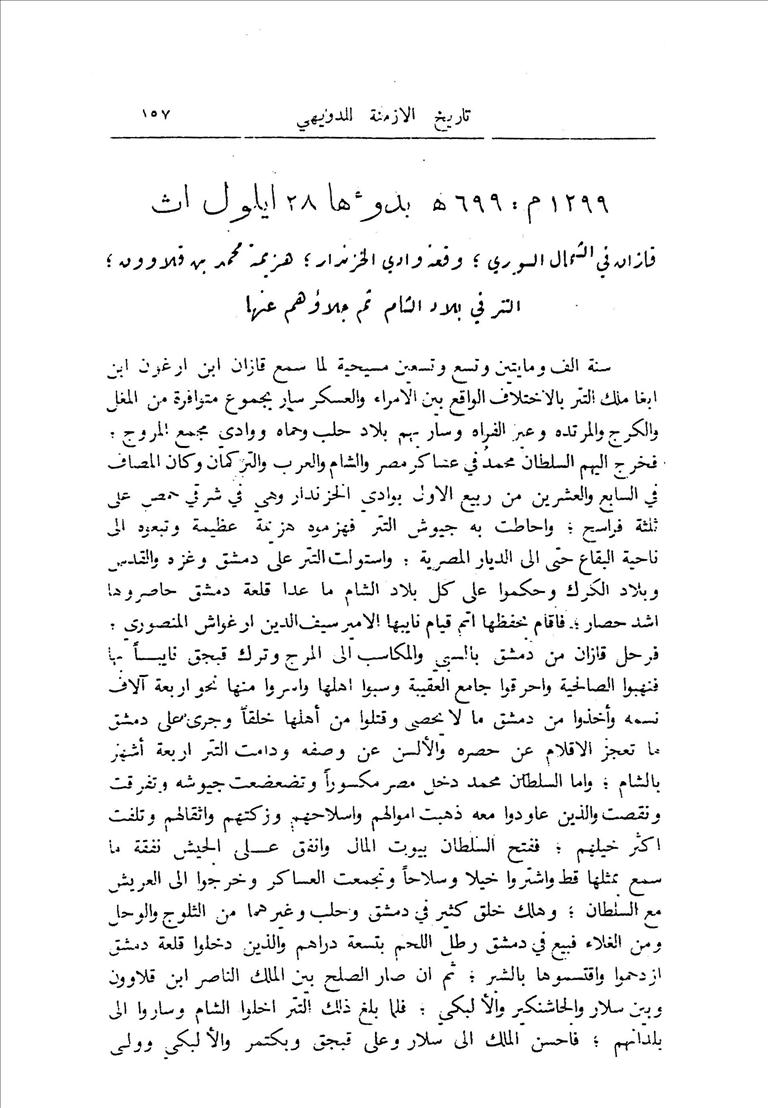 تاريخ الازمنة للدويهي ١٥٧
١٢٩٩ م : ٦٩٩ ه بدوءها ٢٨ ايلول اث
قازان في الشمال السوري ؛ وقعة وادي الخزندار ؛ هزيمة محمد بن قلاوون ؛
التتر في بلاد الشام ثم جلاؤهم عنها
سنة الف ومايتين وتسع وتسعين مسيحية لما سمع قازان ابن ارغون ابن
ابغا ملك التتر بالاختلاف الواقع بين الامراء والعسكر سار بجموع متوافرة من المغل
والكرج والمرتده وعبر الفراه وسار بهم بلاد حلب وحماه ووادي مجمع المروج :
فخرج اليهم السلطان محمد في عساكر مصر والشام والعرب والتركمان وكان المصاف
في السابع والعشرين من ربيع الاول بوادي الخزندار وهي في شرقي حمص على
ثلثة فراسخ ؛ واحاطت به جيوش التتر فهزموه هزيمة عظيمة وتبعوه الى
ناحية البقاع حتى الى الديار المصرية : واستولت التتر على دمشق وغزه والقدس
وبلاد الكرك وحكموا على كل بلاد الشام ما عدا قلعة دمشق حاصروها
اشد حصار ؛ فاقام بحفظها اتم قيام نايبها الامير سيف الدين ارغواش المنصوري :
فرحل قازان من دمشق بالسبي والمكاسب الى المرج وترك قبجق نايباً بها
فنهبوا الصالحية واحرقوا جامع العقيبة وسبوا اهلها واسروا منها نحو اربعة آلاف
نسمه وأخذوا من دمشق ما لا يحصى وقتلوا من أهلها خلقاً وجرى على دمشق
ما تعجز الاقلام عن حصره والألسن عن وصفه ودامت التتر اربعة أشهر
بالشام ؛ واما السلطان محمد دخل مصر مكسوراً وتضعضعت جيوشه وتفرقت
ونقصت والذين عاودوا معه ذهبت اموالهم واسلاحهم وزكتهم واثقالهم وتلفت
اكثر خيلهم ؛ ففتح السلطان بيوت المال وانفق على الجيش نفقة ما
سمع بمثلها قط واشتروا خيلا وسلاحاً وتجمعت العساكر وخرجوا الى العريش
مع السلطان ؛ وهلك خلق كثير في دمشق وحلب وغيرهما من الثلوج والوحل
ومن الغلاء فبيع في دمشق رطل اللحم بتسعة دراهم والذين دخلوا قلعة دمشق
ازدحموا واقتسموها بالشبر ؛ ثم ان صار الصلح بين الملك الناصر ابن قلاوون
وبين سلار والجاشنكير والألبكي ؛ فلما بلغ ذلك التتر اخلوا الشام وساروا الى
بلدانهم ؛ فاحسن الملك الى سلار وعلى قبجق وبكتمر والألبكي وولى